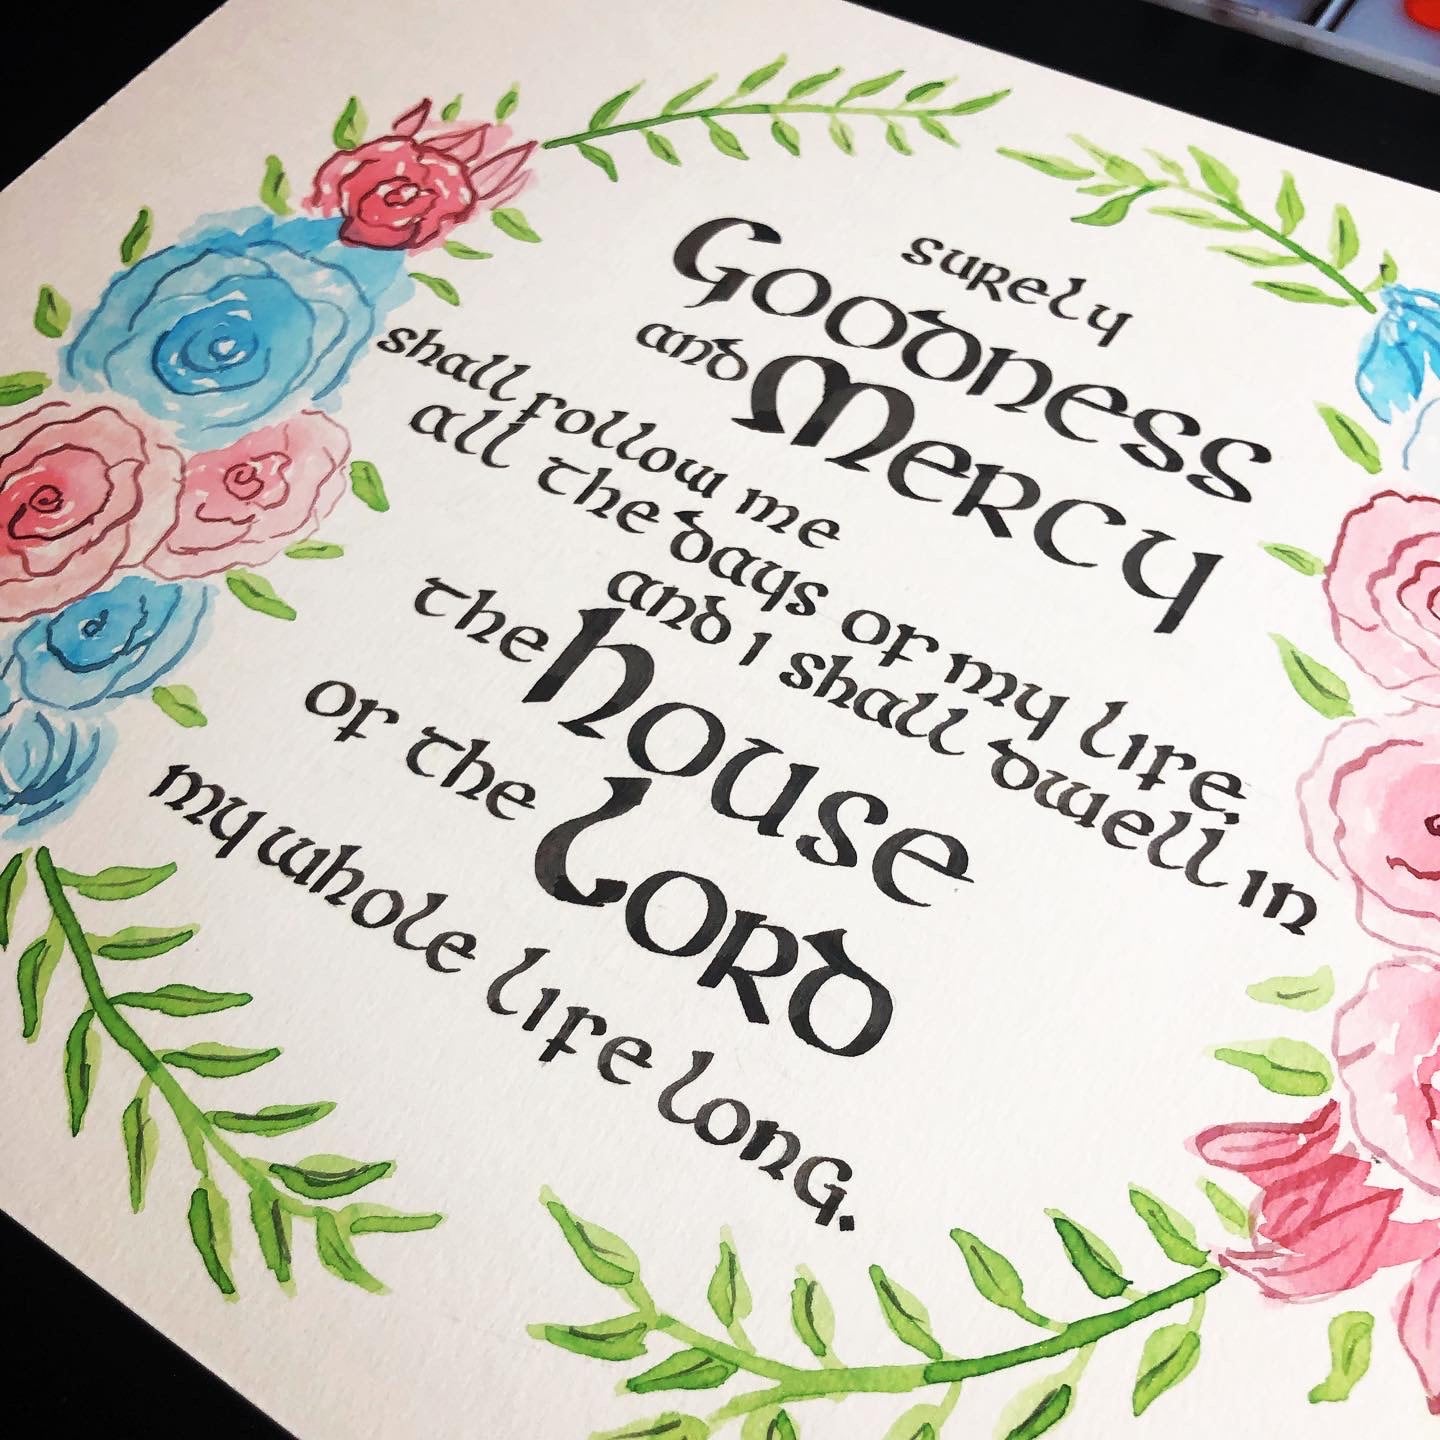 surely
Goodness
and Mercy
shall follow me
all the days of my life,
and I shall dwell in
the house
of the Lord
my whole life long.